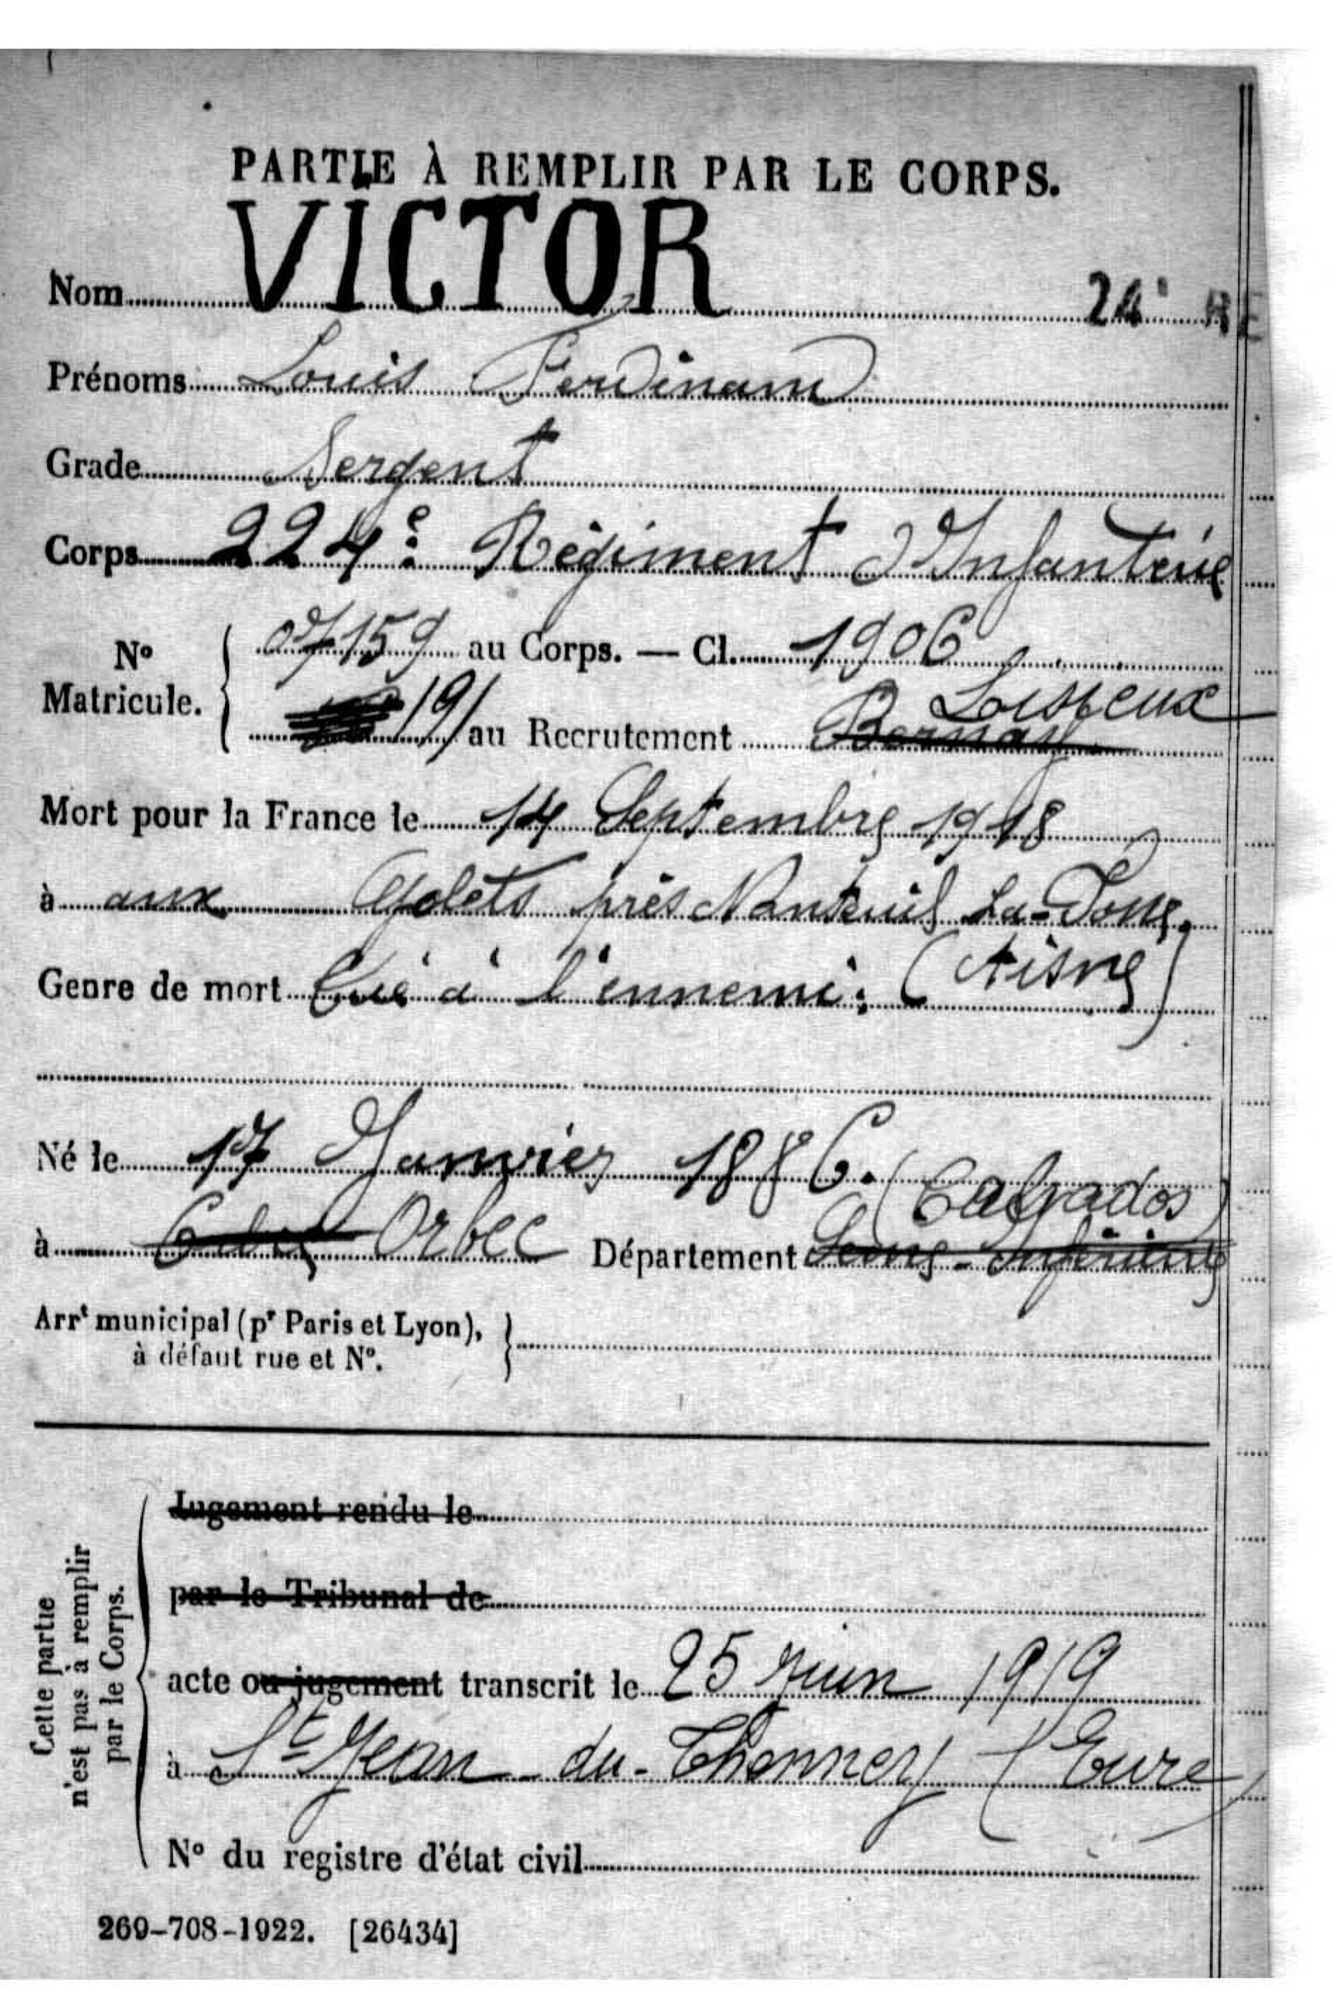 PARTIE À REMPLIR PAR LE CORPS.
Nom VICTOR 24e RE
Prénoms Louis Ferdinand
Grade Sergent
Corps 224e Régiment d'Infanterie
No Matricule. { 07159 au Corps. — Cl. 1906
191 au Recrutement Bernay Lisieux
Mort pour la France le 14 Septembre 1918
à aux près Nanteuil La-Fosse
Genre de mort Tué à l'ennemi. (Aisne)
Né le 17 Janvier 1886. (Calvados)
à Orbec Département Seine-Inférieure
Arrt municipal (pr Paris et Lyon), }
à défaut rue et No.
Cette partie
n'est pas à remplir
par le Corps.
Jugement rendu le
par le Tribunal de
acte ou jugement transcrit le 25 Juin 1919
à St Jean-du-Thenney (Eure)
No du registre d'état civil
269-708-1922. [26434]